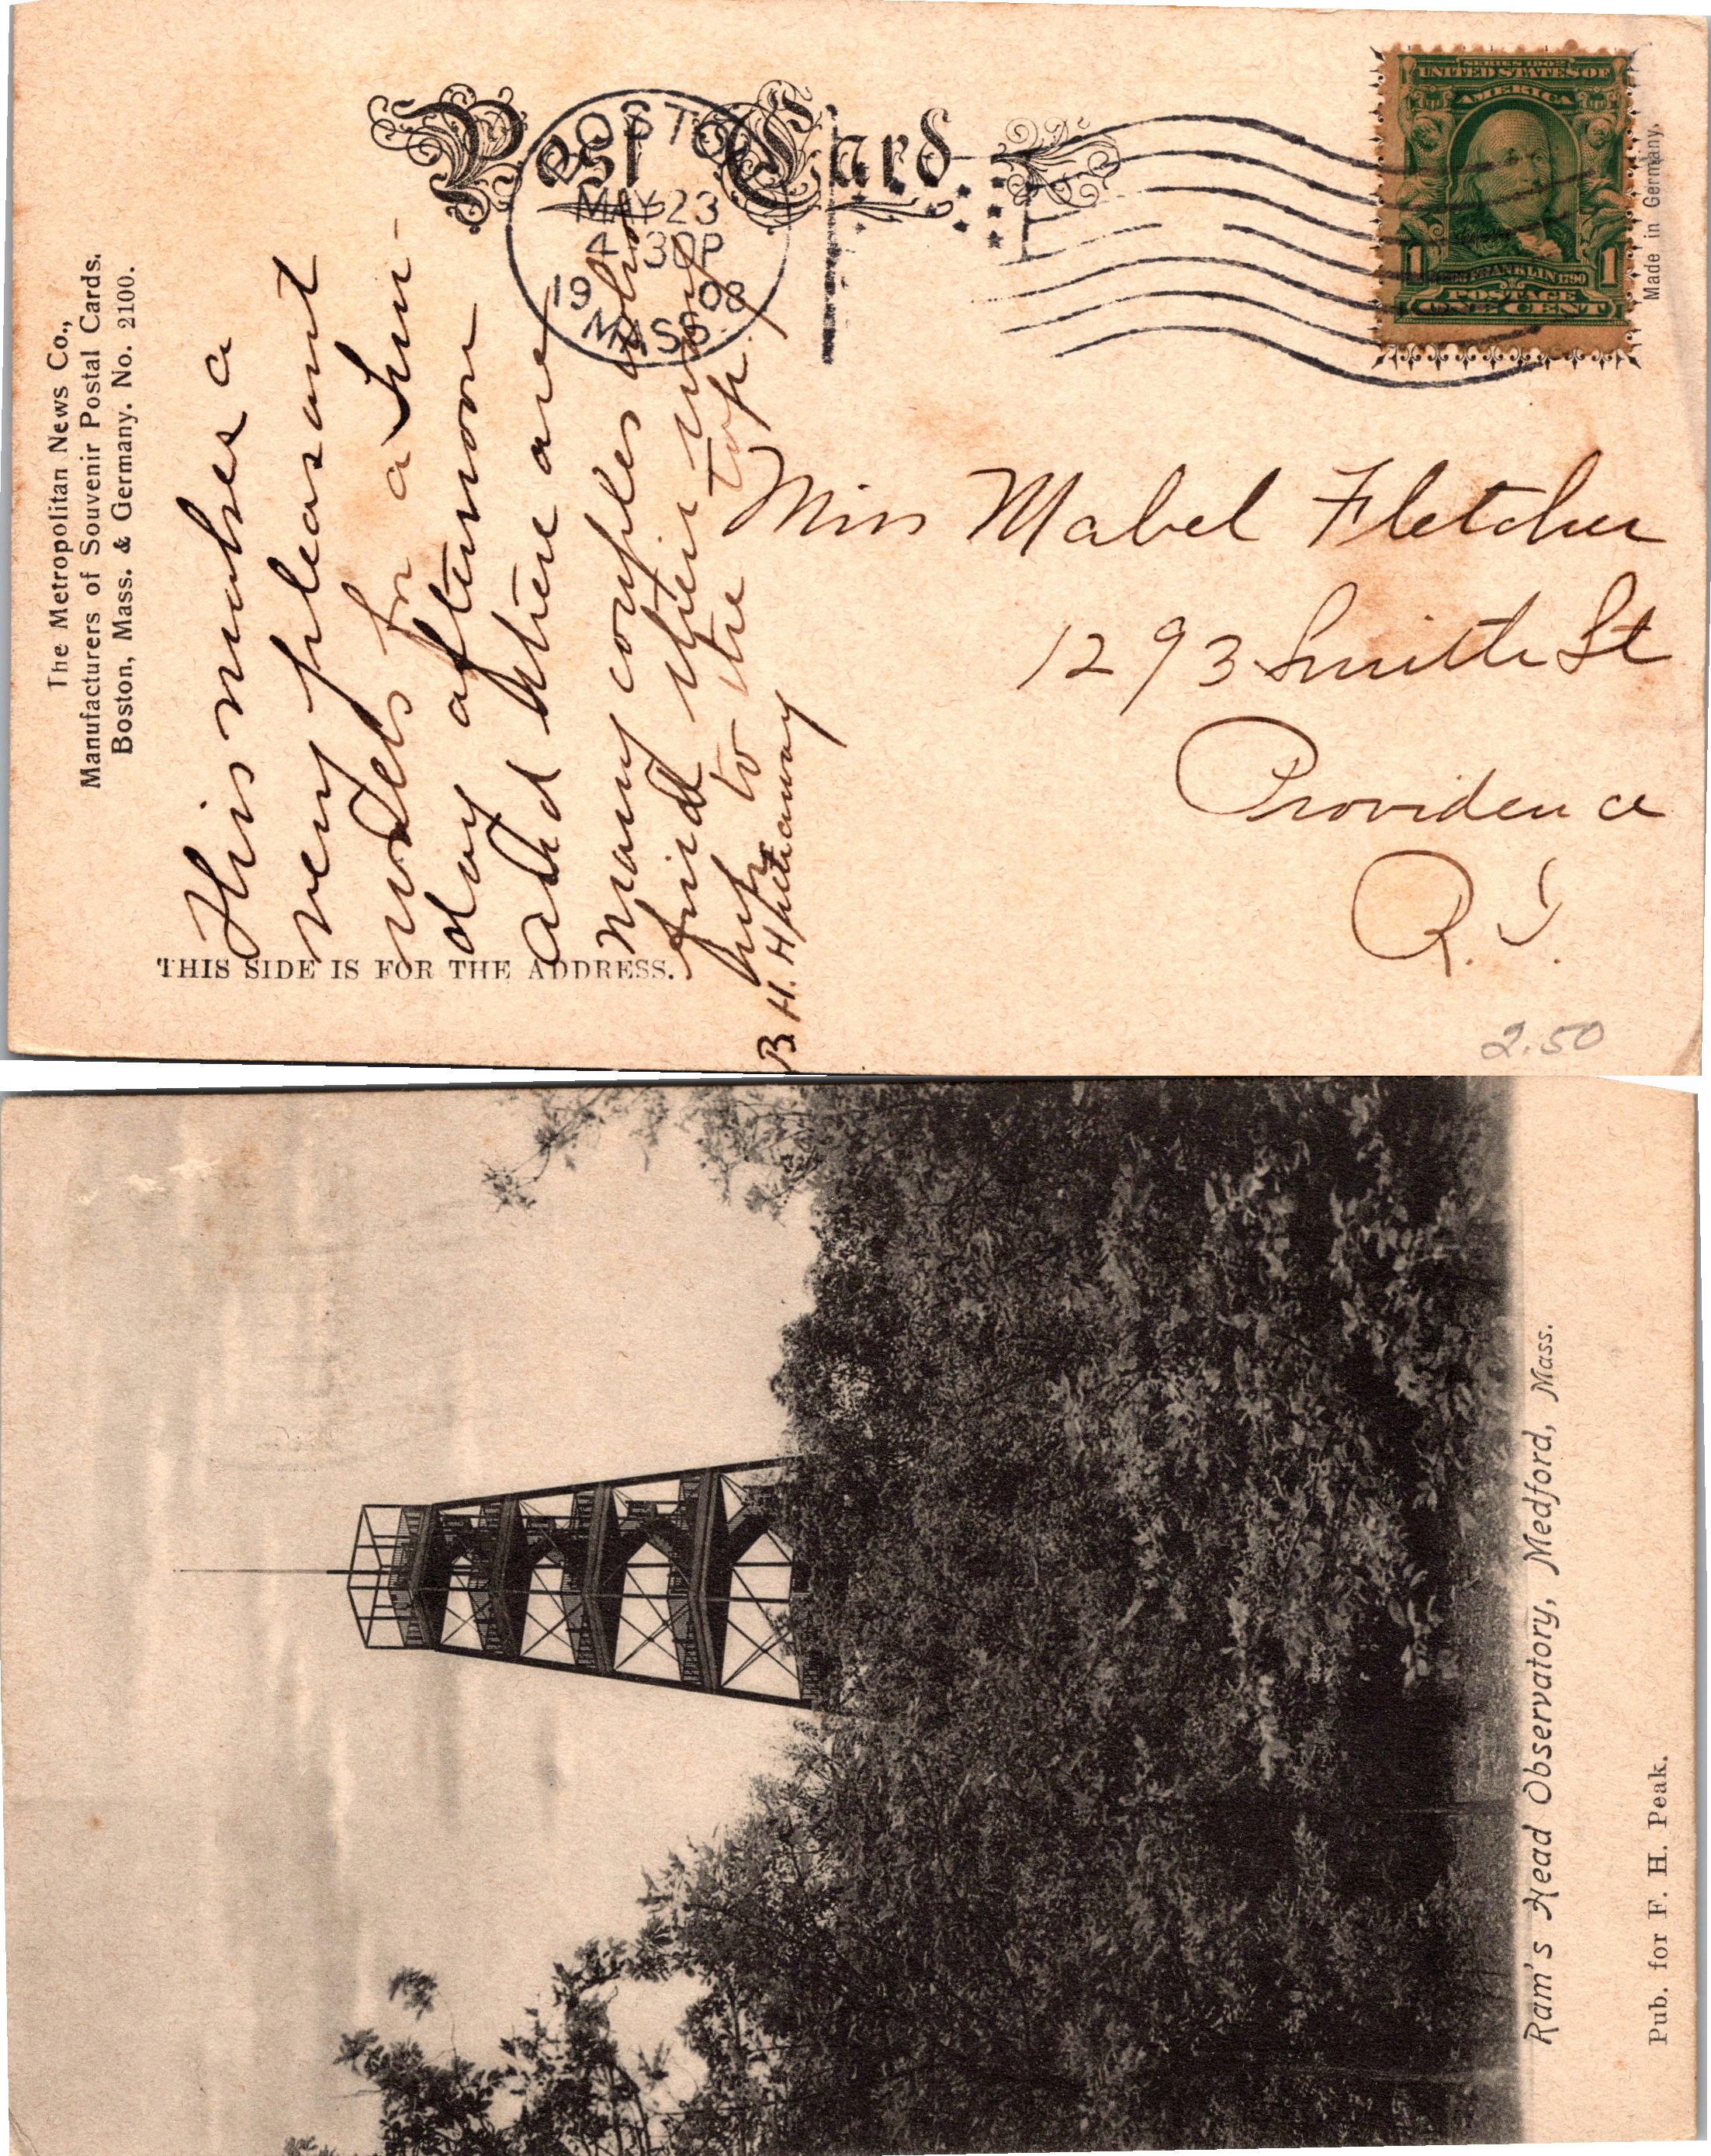 Post Card
BOSTON
MAY 23
4 30P
19 08
MASS.
SERIES 1902
UNITED STATES OF
AMERICA
1 FRANKLIN 1790 1
POSTAGE
ONE CENT
Made in Germany.
The Metropolitan News Co.,
Manufacturers of Souvenir Postal Cards.
Boston, Mass. & Germany. No. 2100.
This makes a
very pleasant
for a Sun-
day afternoon
and there are
many couples who
find their way
up to the top.
B. H. Hathaway
THIS SIDE IS FOR THE ADDRESS.
Miss Mabel Fletcher
1293 Smith St
Providence
R.I.
2.50
Ram's Head Observatory, Medford, Mass.
Pub. for F. H. Peak.